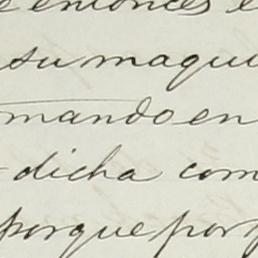 entonces e
su maque
mando en
dicha com
porque por